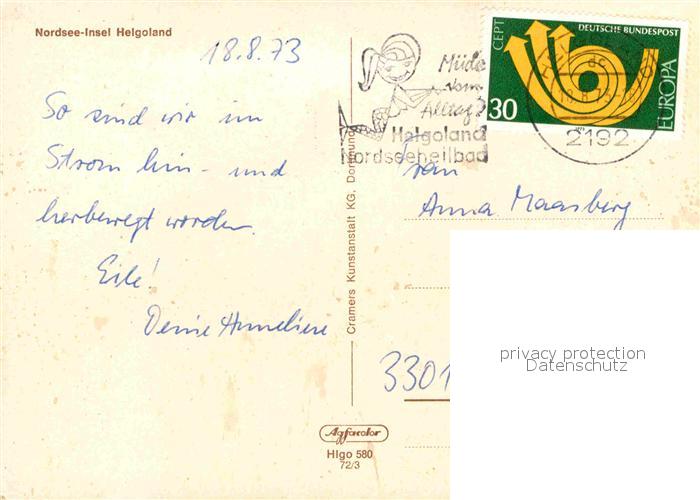 Nordsee-Insel Helgoland
18.8.73
So sind wir im
Strom hin- und
herbewegt worden.
Eile!
Deine Anneliese
Cramers Kunstanstalt KG, Dortmund
Müde
vom
Alltag?
Helgoland
Nordseeheilbad
CEPT
DEUTSCHE BUNDESPOST
30
EUROPA
2192
Frau
Anna Maasberg
3301
privacy protection
Datenschutz
Agfacolor
Hlgo 580
72/3